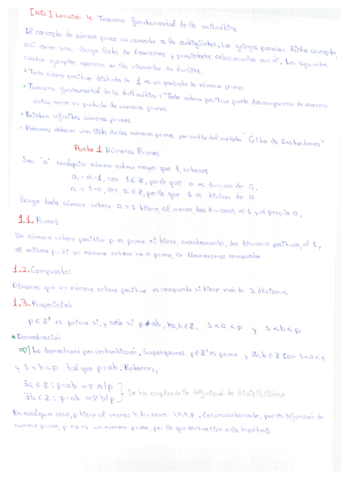 [MD] Lección 4 Teorema fundamental de la aritmética
El concepto de número primo es conocido en la antigüedad, los griegos poseían dicho concepto,
así como una larga lista de teoremas y propiedades relacionados con él. Los siguientes
cuatro ejemplos aparecen en los elementos de Euclides.
• Todo entero positivo distinto de 1 es un producto de números primos
• Teorema fundamental de la Aritmética: "Todo entero positivo puede descomponerse de manera
única como un producto de números primos
• Existen infinitos números primos
• Podemos obtener una lista de los números primos por medio del método "Criba de Eratóstenes"
Punto 1 Números Primos
Sea "a" cualquier número entero mayor que 1, entonces
a = a·1, con 1∈Z, por lo que a es divisor de a.
a = 1·a, con a∈Z, por lo que 1 es divisor de a
Luego todo número entero a > 1 tiene, al menos, dos divisores, el 1 y el propio a.
1.1. Primos
Un número entero positivo p es primo si tiene, exactamente, dos divisores positivos, el 1 y
el mismo p. Si un número entero no es primo, lo llamaremos compuesto
1.2. Compuestos
Diremos que un número entero positivo es compuesto si tiene más de 2 divisores.
1.3. Proposición
p∈Z⁺ es primo si, y sólo si p≠ab, ∀a,b∈Z, 1<a<p y 1<b<p
• Demostración
⇒) Lo demostraré por contradicción, Supongamos p∈Z⁺ es primo y ∃a,b∈Z con 1<a<p
y 1<b<p tal que p=ab. Entonces,
∃a∈Z : p=ab ⇒ a|p
∃b∈Z : p=ab ⇒ b|p
Se ha empleado la definición de divisibilidad
En cualquier caso, p tiene al menos 4 divisores: 1,a,b,p. Consecuentemente, por la definición de
número primo, p no es un número primo, por lo que contradice a la hipótesis